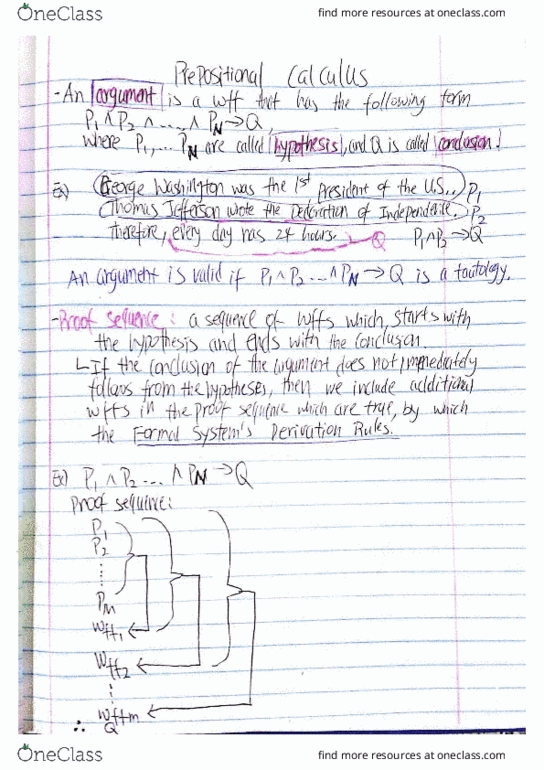 OneClass
find more resources at oneclass.com
Prepositional Calculus
-An argument is a wff that has the following form
P1 ∧ P2 ∧ ... ∧ PN → Q,
where P1, ... PN are called hypothesis, and Q is called conclusion!
Ex) George Washington was the 1st President of the U.S.. P1
Thomas Jefferson wrote the Declaration of Independence. P2
Therefore, every day has 24 hours. Q P1∧P2 → Q
An argument is valid if P1 ∧ P2 ... ∧ PN → Q is a tautology.
-Proof sequence: a sequence of wffs which, starts with
the hypothesis and ends with the conclusion.
↳If the conclusion of the argument does not immediately
follows from the hypotheses, then we include additional
wffs in the proof sequence which are true, by which
the Formal System's Derivation Rules.
Ex) P1 ∧ P2 ... ∧ PN → Q
Proof sequence:
P1
P2
Wff1
Wff2
wffm
∴ Q
OneClass
find more resources at oneclass.com